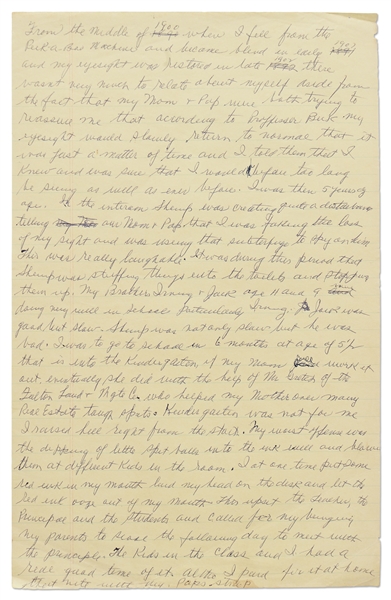 From the middle of 1900 when I fell from the
Peek-a-Boo Machine and became blind in early
and my eyesight was restored in late there
wasnt very much to relate about myself aside from
the fact that my Mom & Pop were both trying to
reassure me that according to Proffesor Beck my
eyesight would slowly return to normal that it
was just a matter of time and I told them that I
knew and was sure that I would before too long
be seeing as well as ever before. I was then 5 years of
age. In the interim Shemp was creating quite a disturbance
telling our Mom & Pop that I was faking the loss
of my sight and was using that subterfuge to
this was really laughable. It was during this period that
Shemp was stuffing things into the toilets and stopping
them up. My Brothers Irving & Jack age 11 and 9
doing very well in school Particularly Irving. Jack was
good but slow. Shemp was not only slow but he was
bad. I was to go to school in 6 months at age of 5½
that is into the Kindergarten if my Mom could work it
out. eventually she did with the help of Mr. of the
Land & Mtg Co. who helped my Mother over many
Real Estate tough spots. Kindergarten was not for me
I raised hell right from the start. My worst offense was
the dipping of little spit balls into the ink well and blowing
them at different Kids in the room. I at one time put some
red ink in my mouth laid my head on the desk and let the
red ink ooze out of my mouth. This upset the Teacher, the
Principal and the students and called for my bringing
my parents to school the following day to meet with
the principle. The Kids in the class and I had a
real good time of it. Also I paid for it at home
that nite with my Pops strap